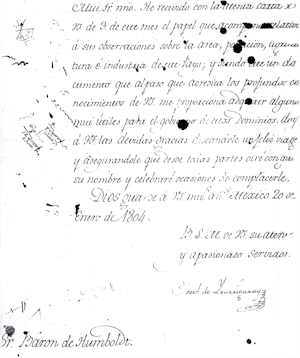 Mui Sr mio. He recivido con la atenta carta de
V. de 3 de este mes el papel que acompaña relativo
á sus observaciones sobre la area, poblacion, agricul
tura é industria de este Pays; y siendo este un do
cumento que al paso que acredita los profundos co
nocimientos de V. me proporciona adquirir algunos
mui utiles para el gobierno de estos dominios, doy
á V. las devidas gracias deseandole un feliz viage
y asegurandole que desde todas partes oiré con gusto
su nombre y celebraré ocasiones de complacerle.
Dios guarde á V. mus. añs. Mexico 20 de
Enero de 1804.
B. S. M. de V. su atento
y apasionado servidor.
José de Iturrigaray
Sr. Baron de Humboldt.